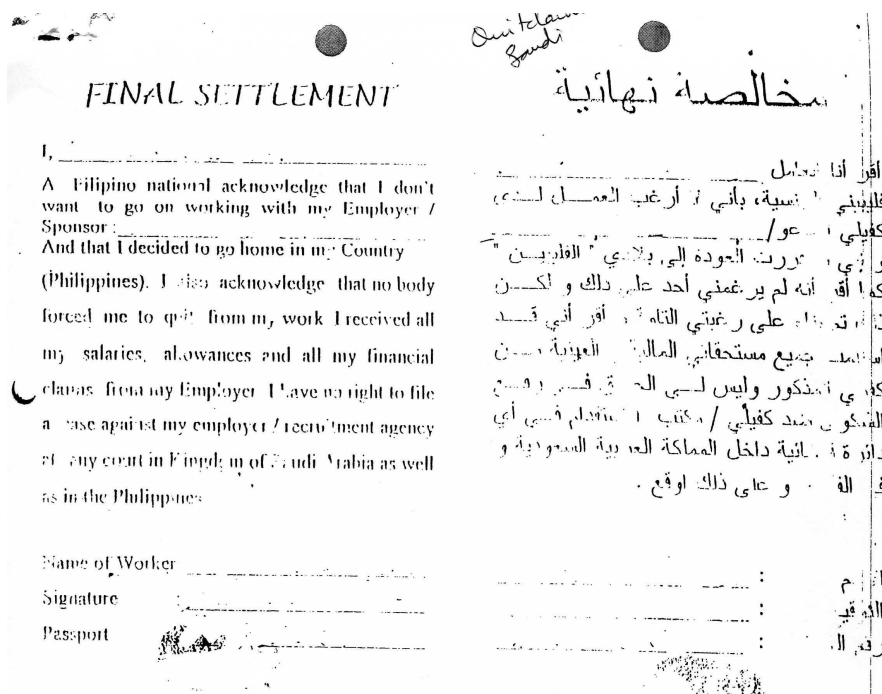 Quitclaim
Saudi
FINAL SETTLEMENT
I,
A Filipino national acknowledge that I don't
want to go on working with my Employer /
Sponsor :
And that I decided to go home in my Country
(Philippines). I also acknowledge that no body
forced me to quit from my work I received all
my salaries, allowances and all my financial
from my Employer I have no right to file
a case against my employer / recruitment agency
at any court in Kingdom of Saudi Arabia as well
as in the Philippines
Name of Worker
Signature :
Passport
مخالصة نهائية
أقر أنا العامل
الجنسية، بأني لا أرغب العمل لدى
كفيلي /
قررت العودة إلى بلادي " الفلبين "
كما أقر أنه لم يرغمني أحد على ذلك و لكن
على رغبتي أقر أني قد
جميع مستحقاتي المالية من
المذكور وليس لي الحق في رفع
ضد كفيلي / مكتب الاستقدام في أي
داخل المملكة العربية السعودية و
و على ذلك اوقع .
:
:
: